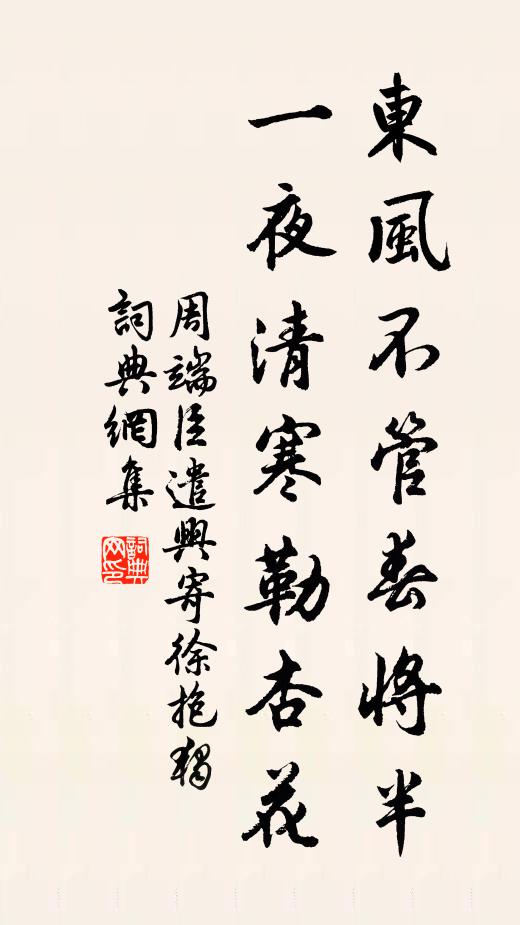 東風不管春將半
一夜清寒勒杏花
周端臣遣興寄徐抱獨
詞典網集
詞典
网印